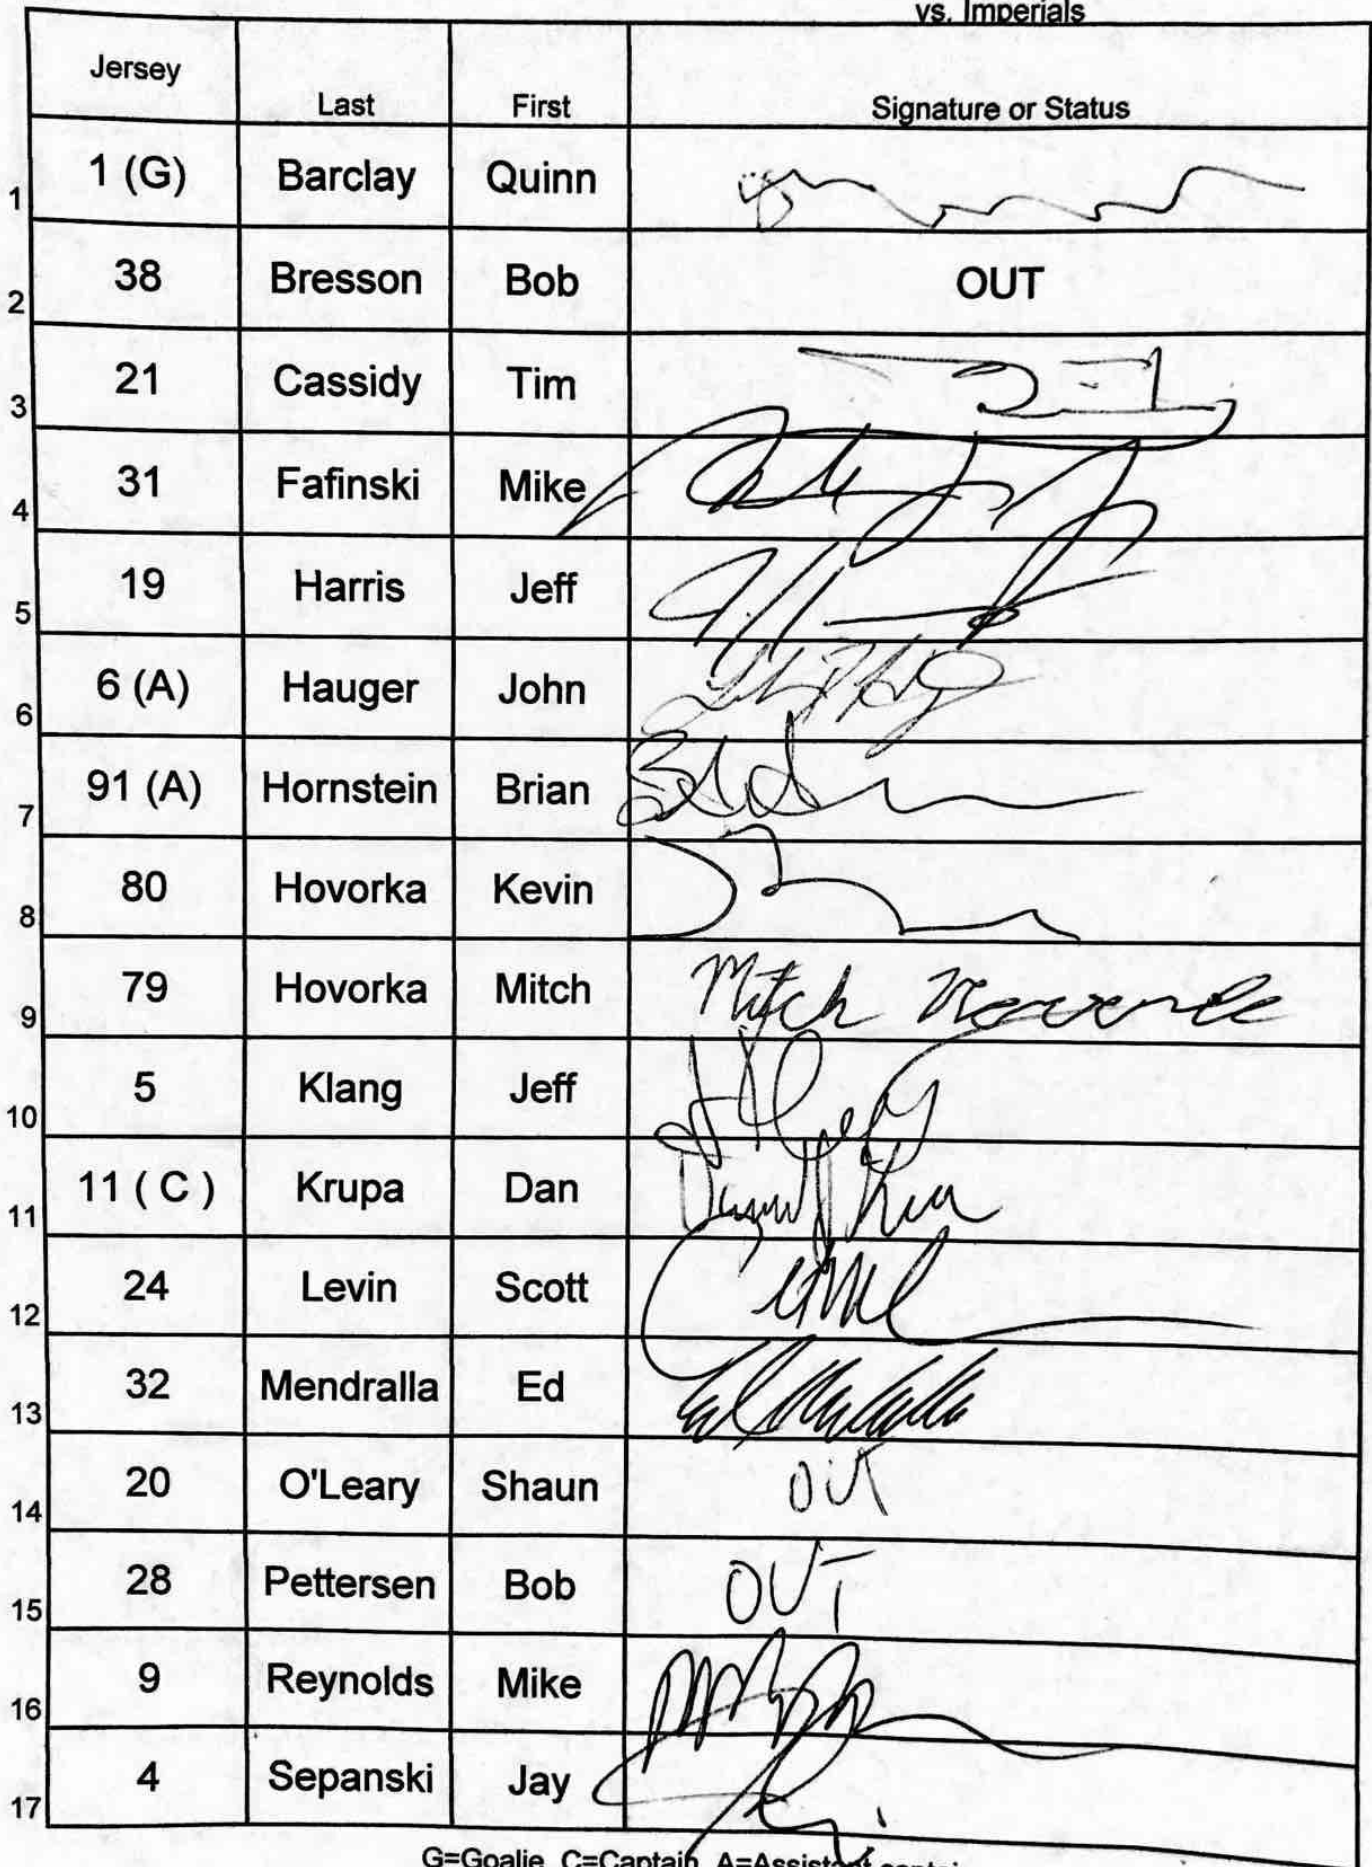 vs. Imperials
Jersey Last First Signature or Status
1 1 (G) Barclay Quinn
2 38 Bresson Bob OUT
3 21 Cassidy Tim
4 31 Fafinski Mike
5 19 Harris Jeff
6 6 (A) Hauger John
7 91 (A) Hornstein Brian
8 80 Hovorka Kevin
9 79 Hovorka Mitch Mitch
10 5 Klang Jeff
11 11 ( C ) Krupa Dan
12 24 Levin Scott
13 32 Mendralla Ed Ed Mendralla
14 20 O'Leary Shaun OUT
15 28 Pettersen Bob OUT
16 9 Reynolds Mike
17 4 Sepanski Jay
G=Goalie C=Captain A=Assistant